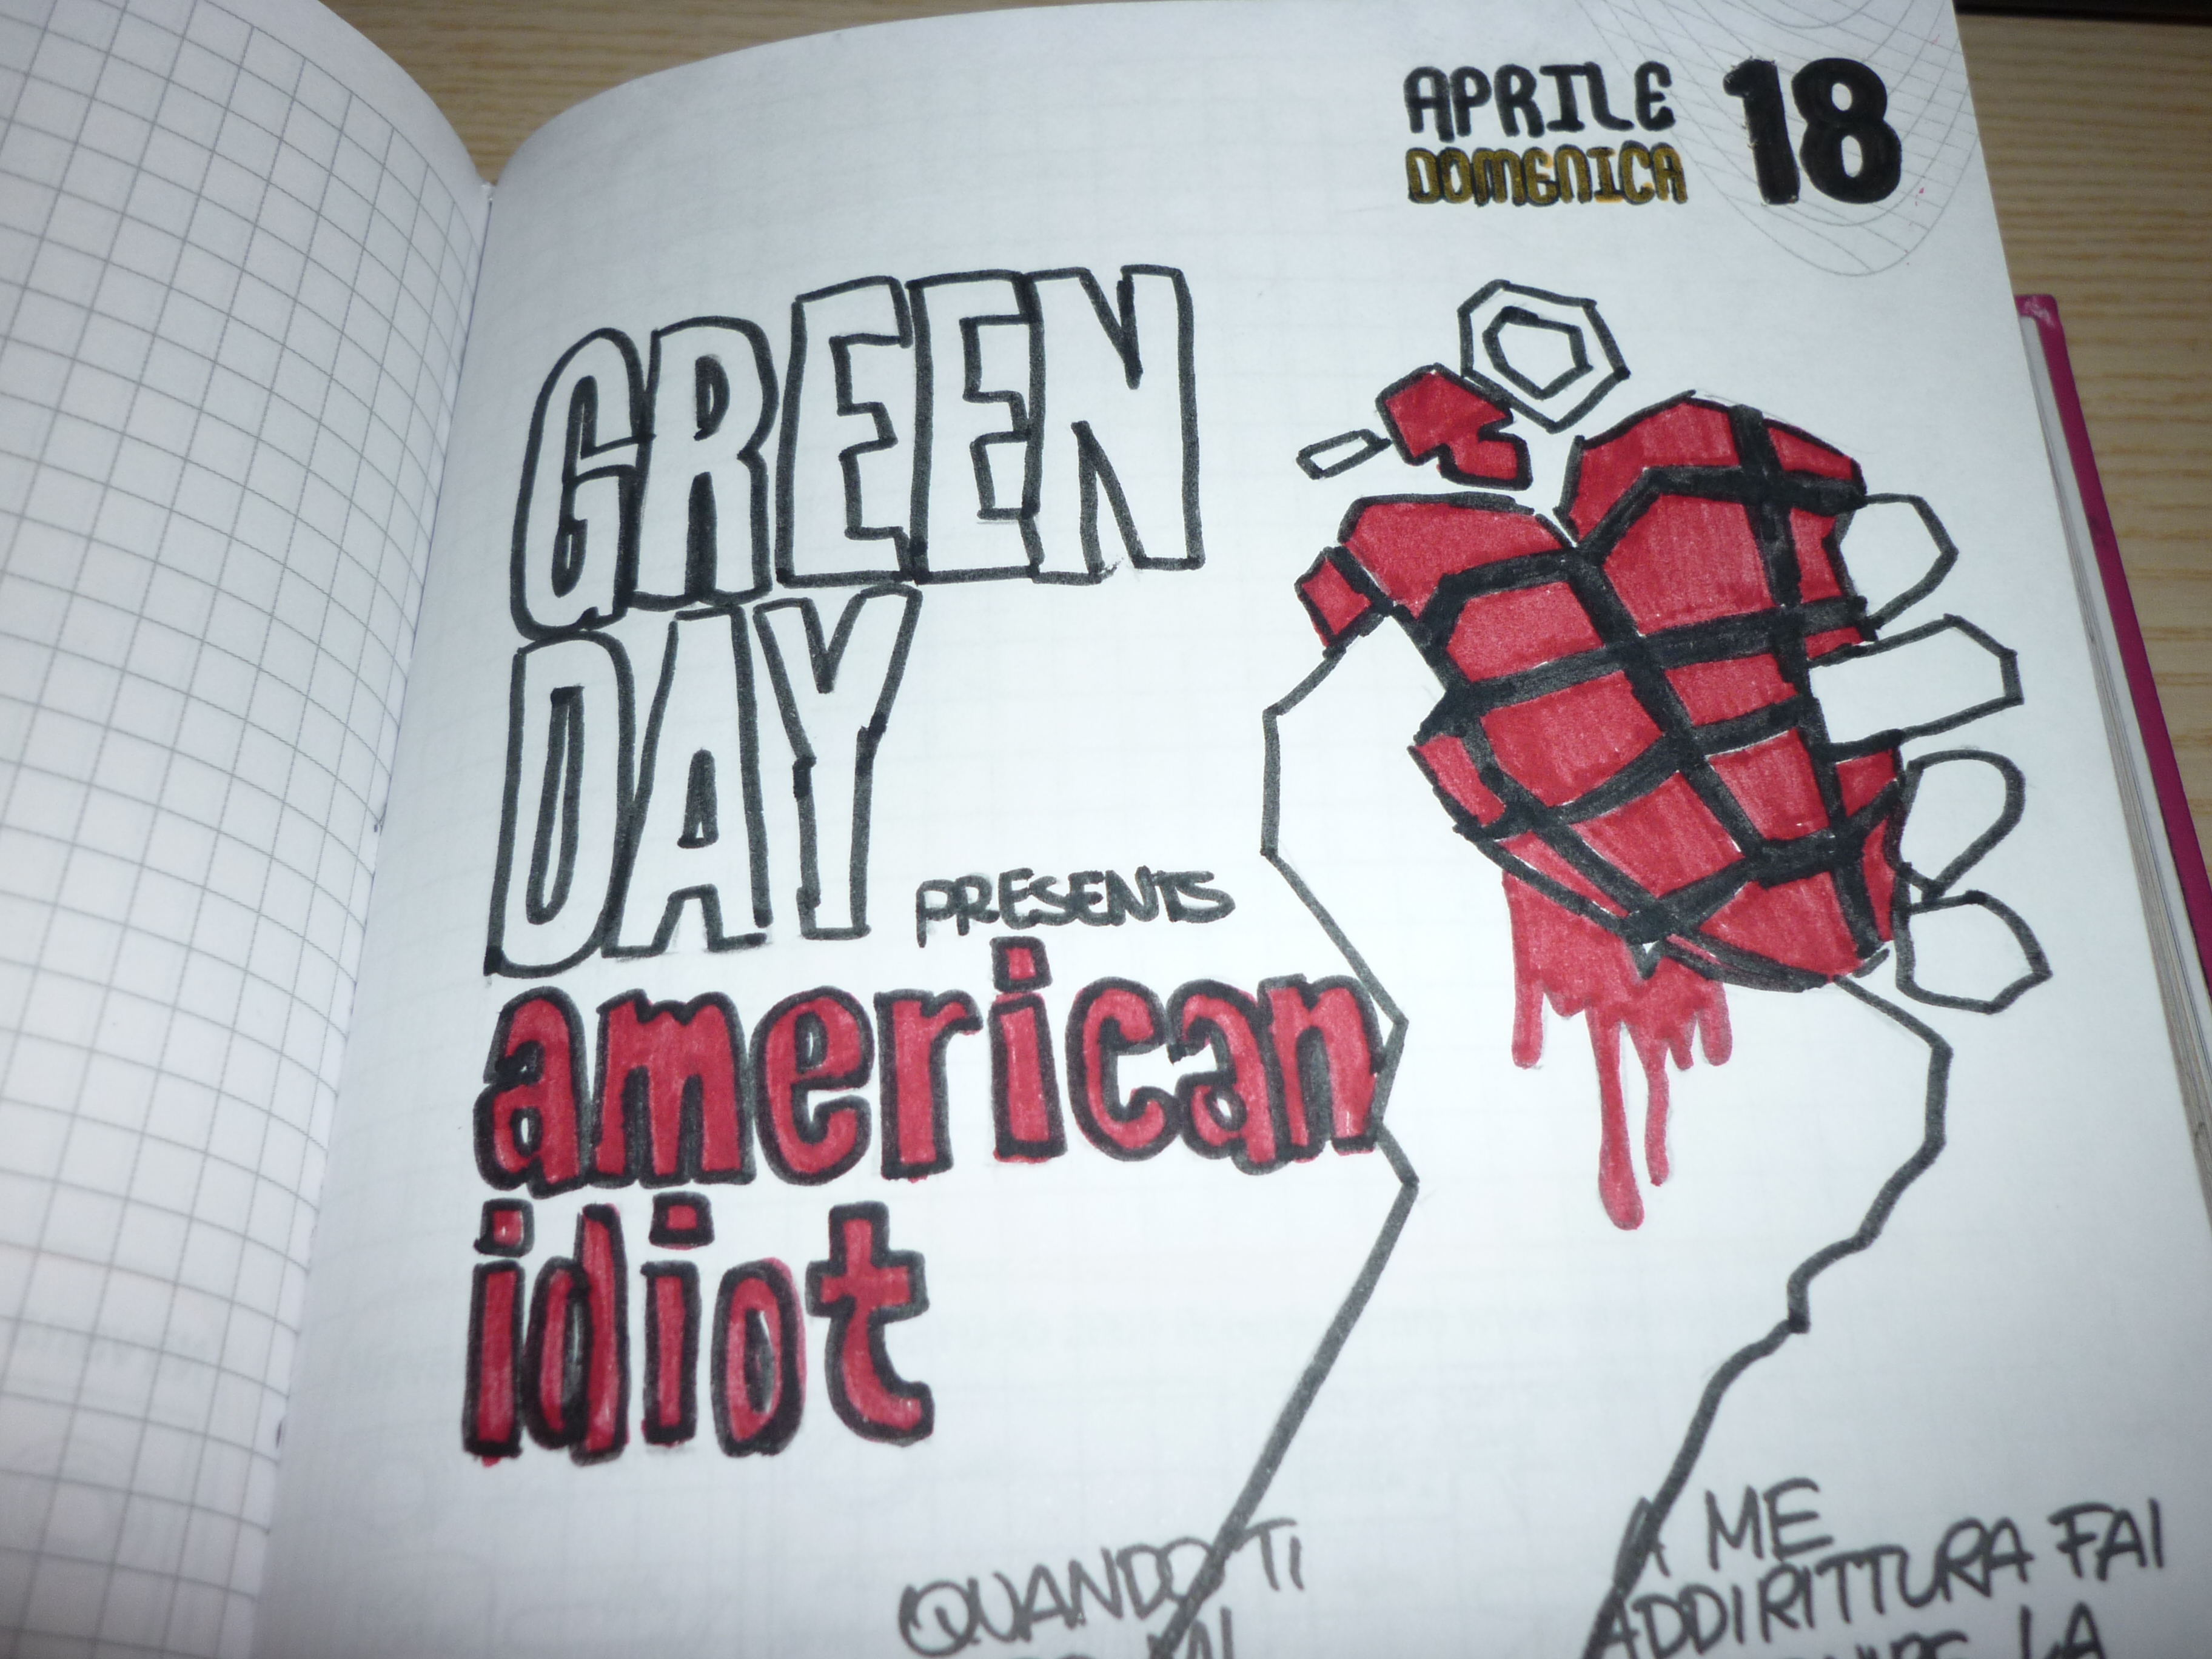 APRILE
DOMENICA
18
GREEN
DAY
PRESENTS
american
idiot
QUANDO TI
A ME
ADDIRITTURA FAI
LA